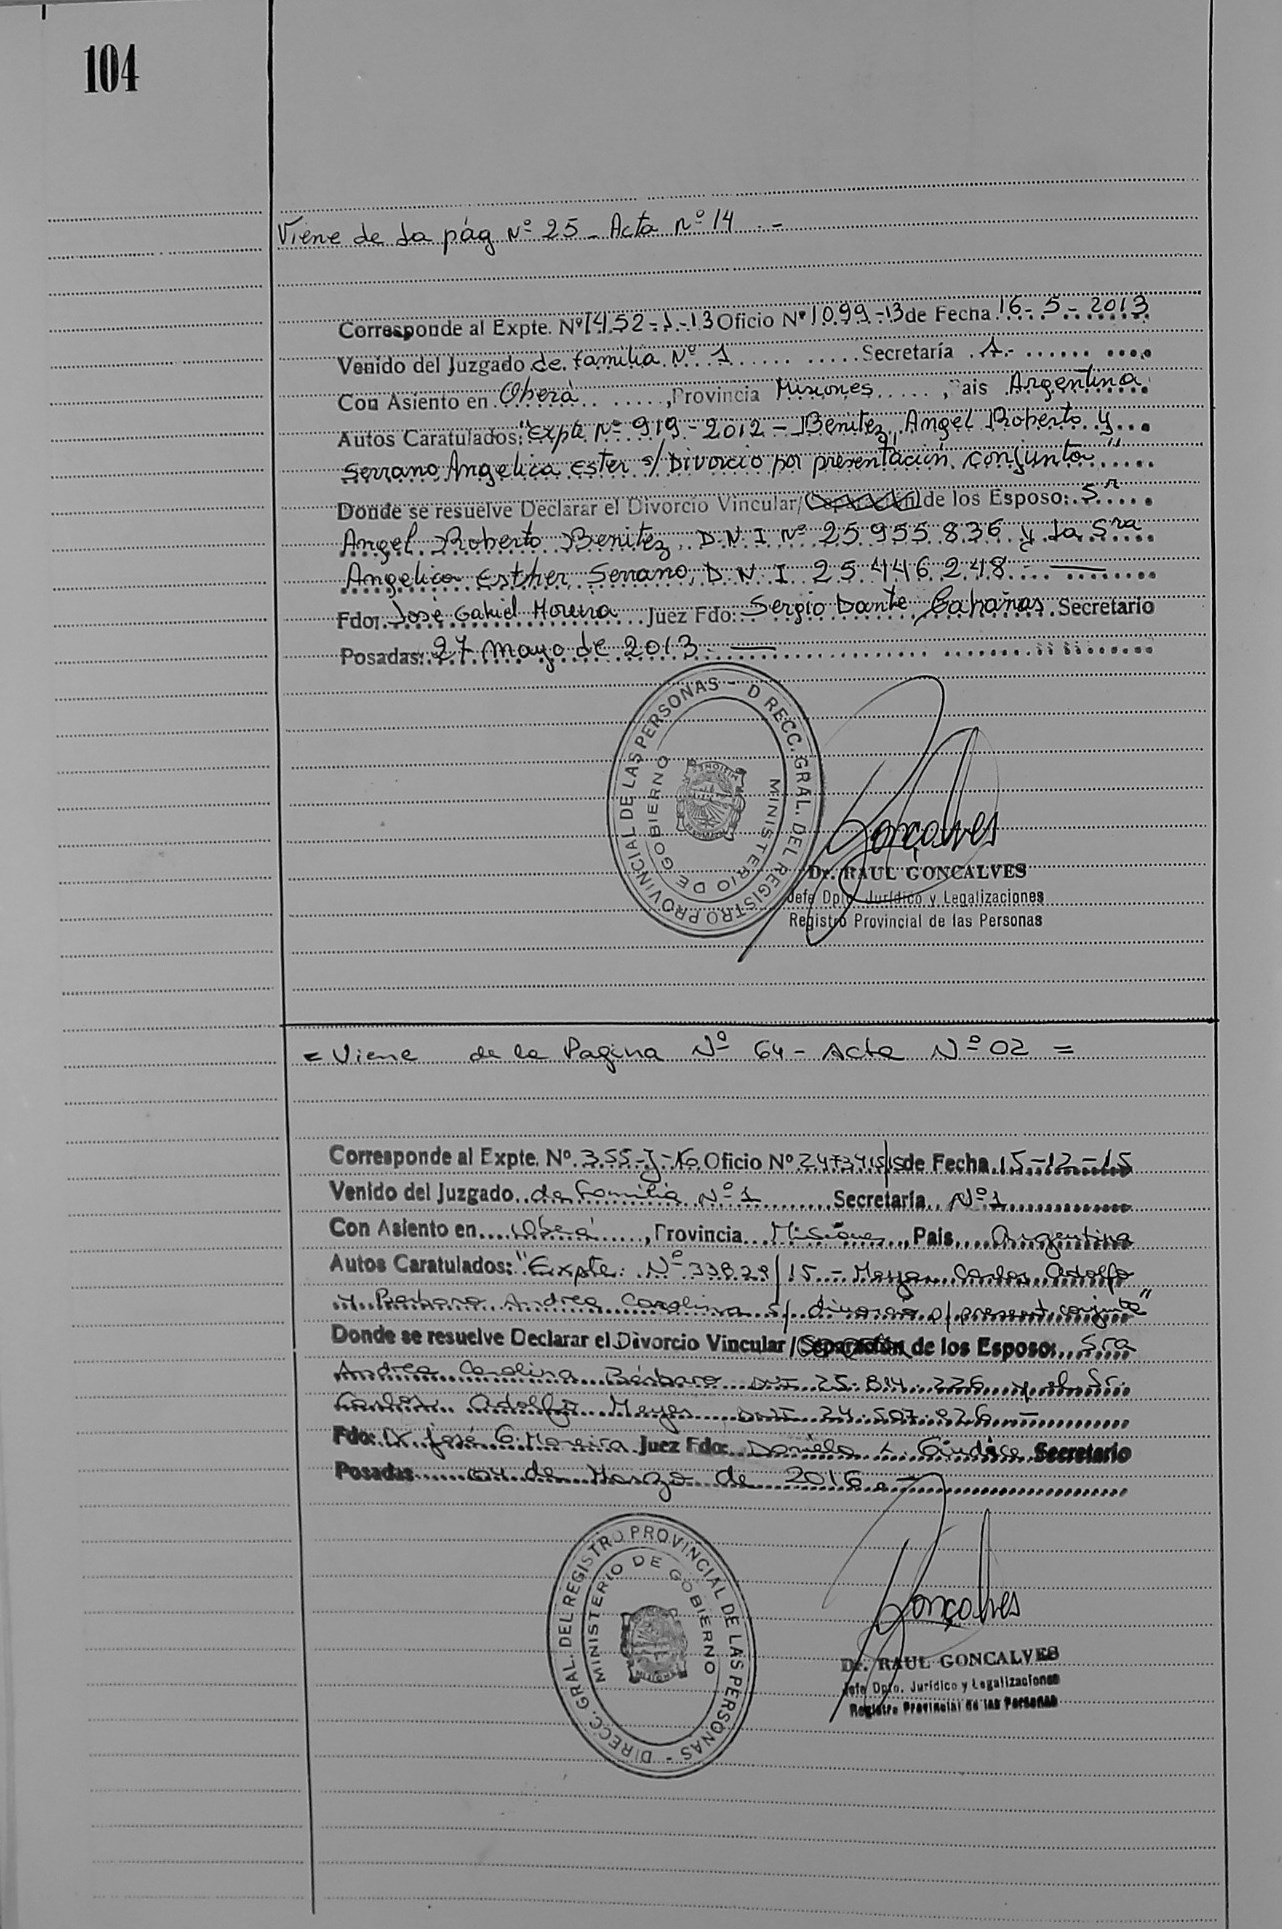 104
Viene de la pág Nº 25 - Acta nº 14 . -
Corresponde al Expte. Nº 1452-J-13 Oficio Nº 1099-13 de Fecha 16-5-2013
Venido del Juzgado de familia Nº 1 Secretaría 1.-
Con Asiento en Oberá, Provincia Misiones, Pais Argentina
Autos Caratulados: "Expte Nº 919-2012 - Benitez, Angel Roberto y
Serrano Angelica Ester s/ Divorcio por presentación conjunta"
Donde se resuelve Declarar el Divorcio Vincular/ de los Esposo: Sr
Angel Roberto Benitez, D.N.I Nº 25955.836 y la Sra
Angelica Esther Serrano, D.N.I. 25.446.248.-
Fdo: José Gabriel Moreira Juez Fdo: Sergio Dante Cabañas Secretario
Posadas: 27 Mayo de 2013.
DIRECC. GRAL. DEL REGISTRO PROVINCIAL DE LAS PERSONAS -
MINISTERIO DE GOBIERNO
MISIONES
Gonçalves
Dr. RAUL GONCALVES
Jefe Dpto. Jurídico y Legalizaciones
Registro Provincial de las Personas
= Viene de la Pagina Nº 64 - Acta Nº 02 =
Corresponde al Expte. Nº 355-J-16 Oficio Nº de Fecha 15-12-15
Venido del Juzgado de Familia Nº 1 Secretaría Nº 1
Con Asiento en Oberá, Provincia Misiones, Pais Argentina
Autos Caratulados: "Expte: Nº 33829/15 - Carlos Adolfo
y Barbaro Andrea Carolina s/ divorcio p/ present. conjunta"
Donde se resuelve Declarar el Divorcio Vincular / Separación de los Esposo: Sra
Andrea Carolina Bárbaro DNI 25.814.226 y el Sr.
Carlos Adolfo DNI 24.507.826 -
Fdo: Dr José G. Moreira Juez Fdo: Daniela L. Giudice Secretario
Posadas 04 de Marzo de 2016.-
DIRECC. GRAL. DEL REGISTRO PROVINCIAL DE LAS PERSONAS -
MINISTERIO DE GOBIERNO
MISIONES
Gonçalves
Dr. RAUL GONCALVES
Jefe Dpto. Jurídico y Legalizaciones
Registro Provincial de las Personas